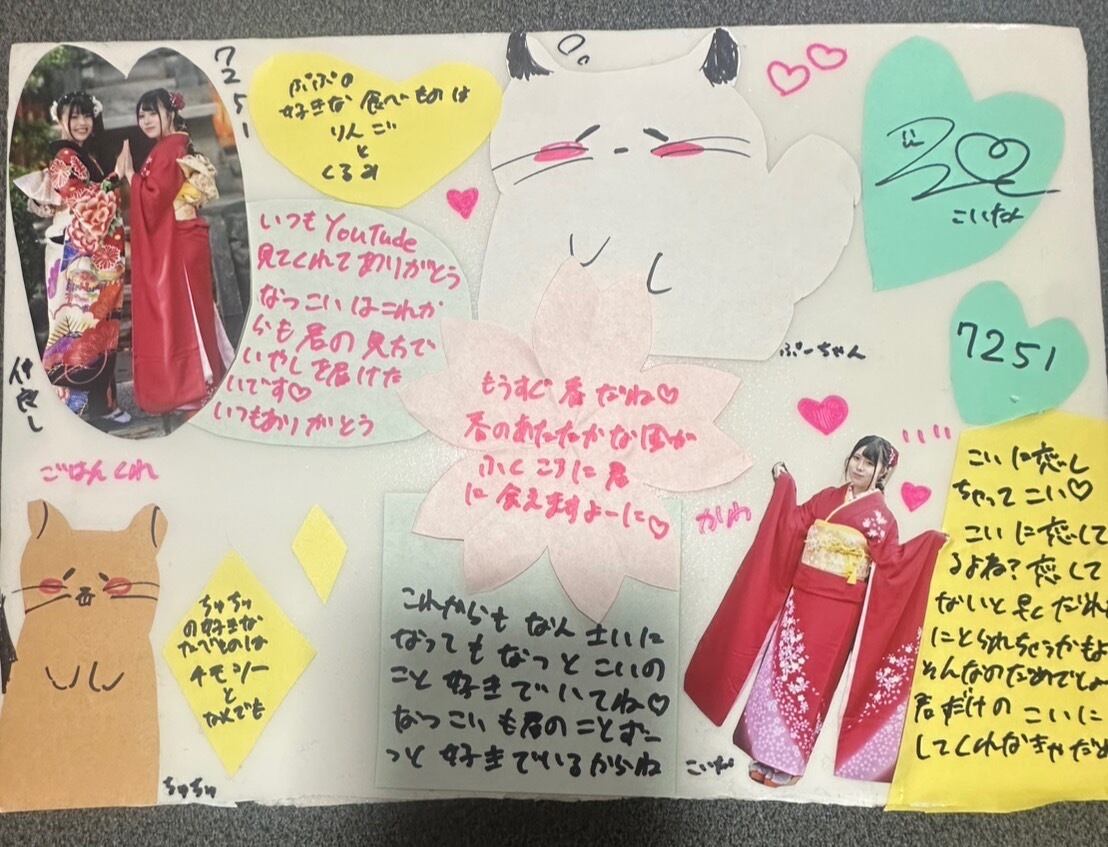 7251
仲良し
ぷぷの
好きな食べものは
りんご
と
くるみ
いつもYouTude
見てくれてありがとう
なつこいはこれか
らも君の見方で
いやしを届けた
いです♡
いつもありがとう
ぷーちゃん
こいなん
7251
もうすぐ春だね♡
春のあたたかな風が
ふくころに君
に会えますよーに♡
ごはんくれ
ちゅちゅ
の好きな
たべものは
チモシー
と
なんでも
ちゅちゅ
これからもなん才いに
なってもなつとこいの
こと好きでいてね♡
なつこいも君のことずー
っと好きでいるからね
かわ
こいな
こいに恋し
ちゃってこい♡
こいに恋して
るよね?恋して
ないと早くだれか
にとられちゃうかもよ
そんなのだめでしょ
君だけのこいに
してくれなきゃだめ